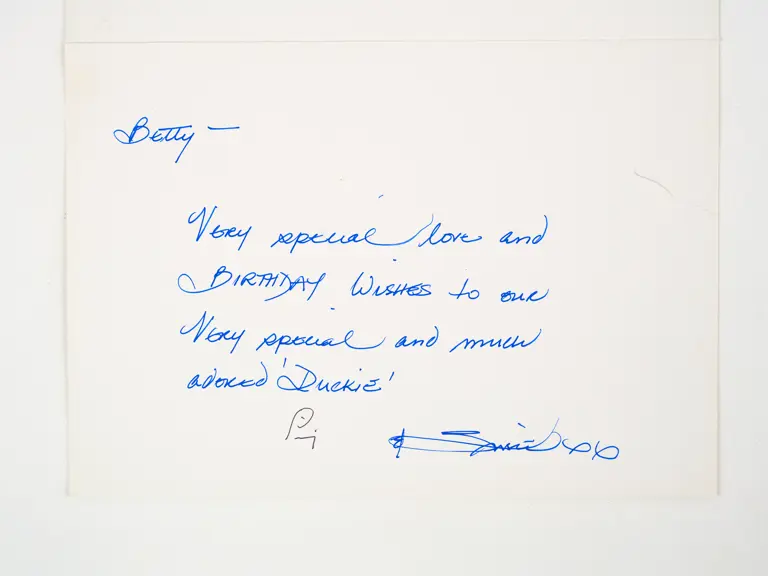 Betty —
Very special love and
Birthday Wishes to our
Very special and much
adored 'Duckie'
xx